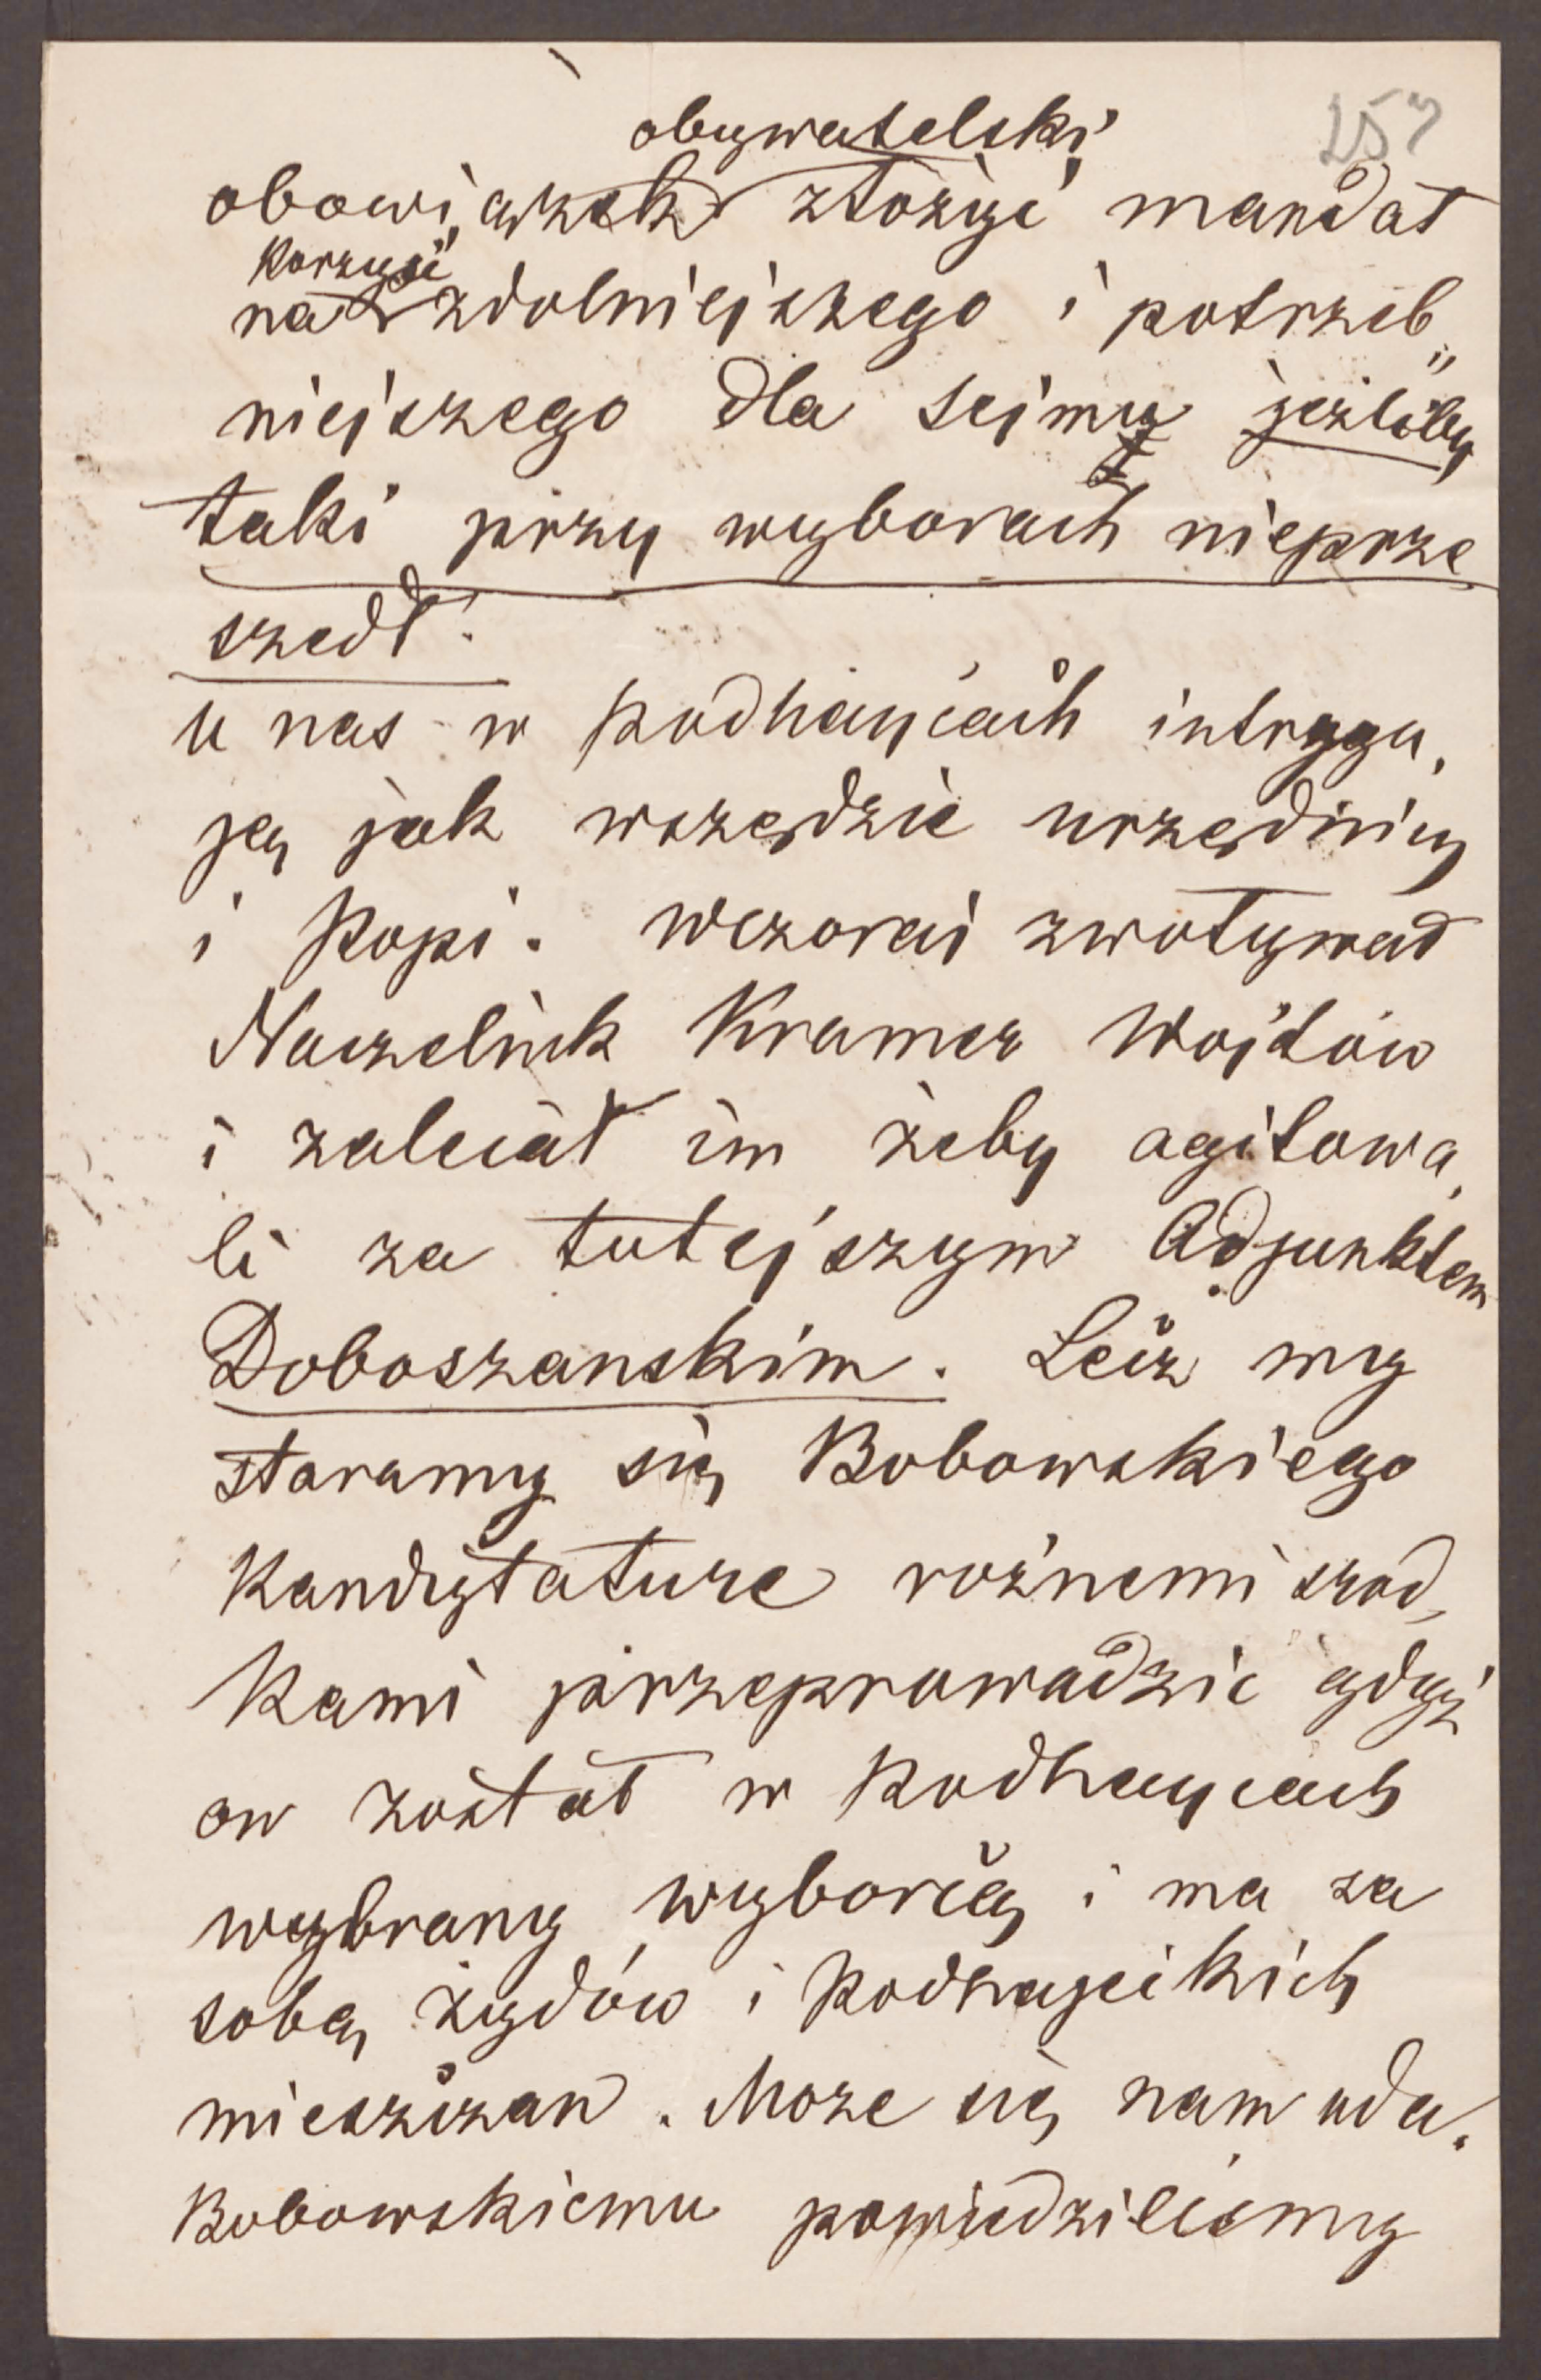 257
obywatelski
obowiązek złożyć mandat
korzyść
na zdolniejszego i potrzeb„
niejszego dla sejmu jeżliby
taki przy wyborach nieprze
szedł.
u nas w podhaycach intrygu,
ją jak wszędzie urzędnicy
i Popi. wczoraj zwoływał
Naczelnik Kramer Wojtów
i zalecał im żeby agitowa,
li za tutejszym Adjunktem
Doboszanskim. Lecz my
staramy się Bobowskiego
Kandytature rożnemi srod,
kami przeprowadzic gdyż
on został w Podhaycach
wybrany wyborcą i ma za
sobą żydów i Podhajeckich
mieszczan. Może się nam uda.
Bobowskiemu powiedzilismy